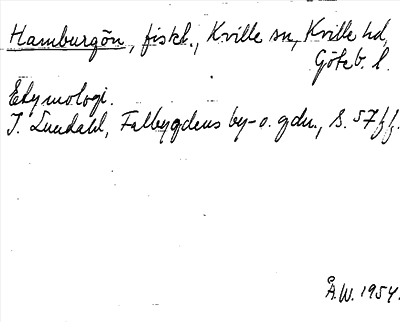 Hamburgön, fiskl., Kville sn, Kville hd,
Göteb. l.
Etymologi.
I. Lundahl, Falbygdens by- o. gdn., s. 57 ff.
Å.W. 1954.